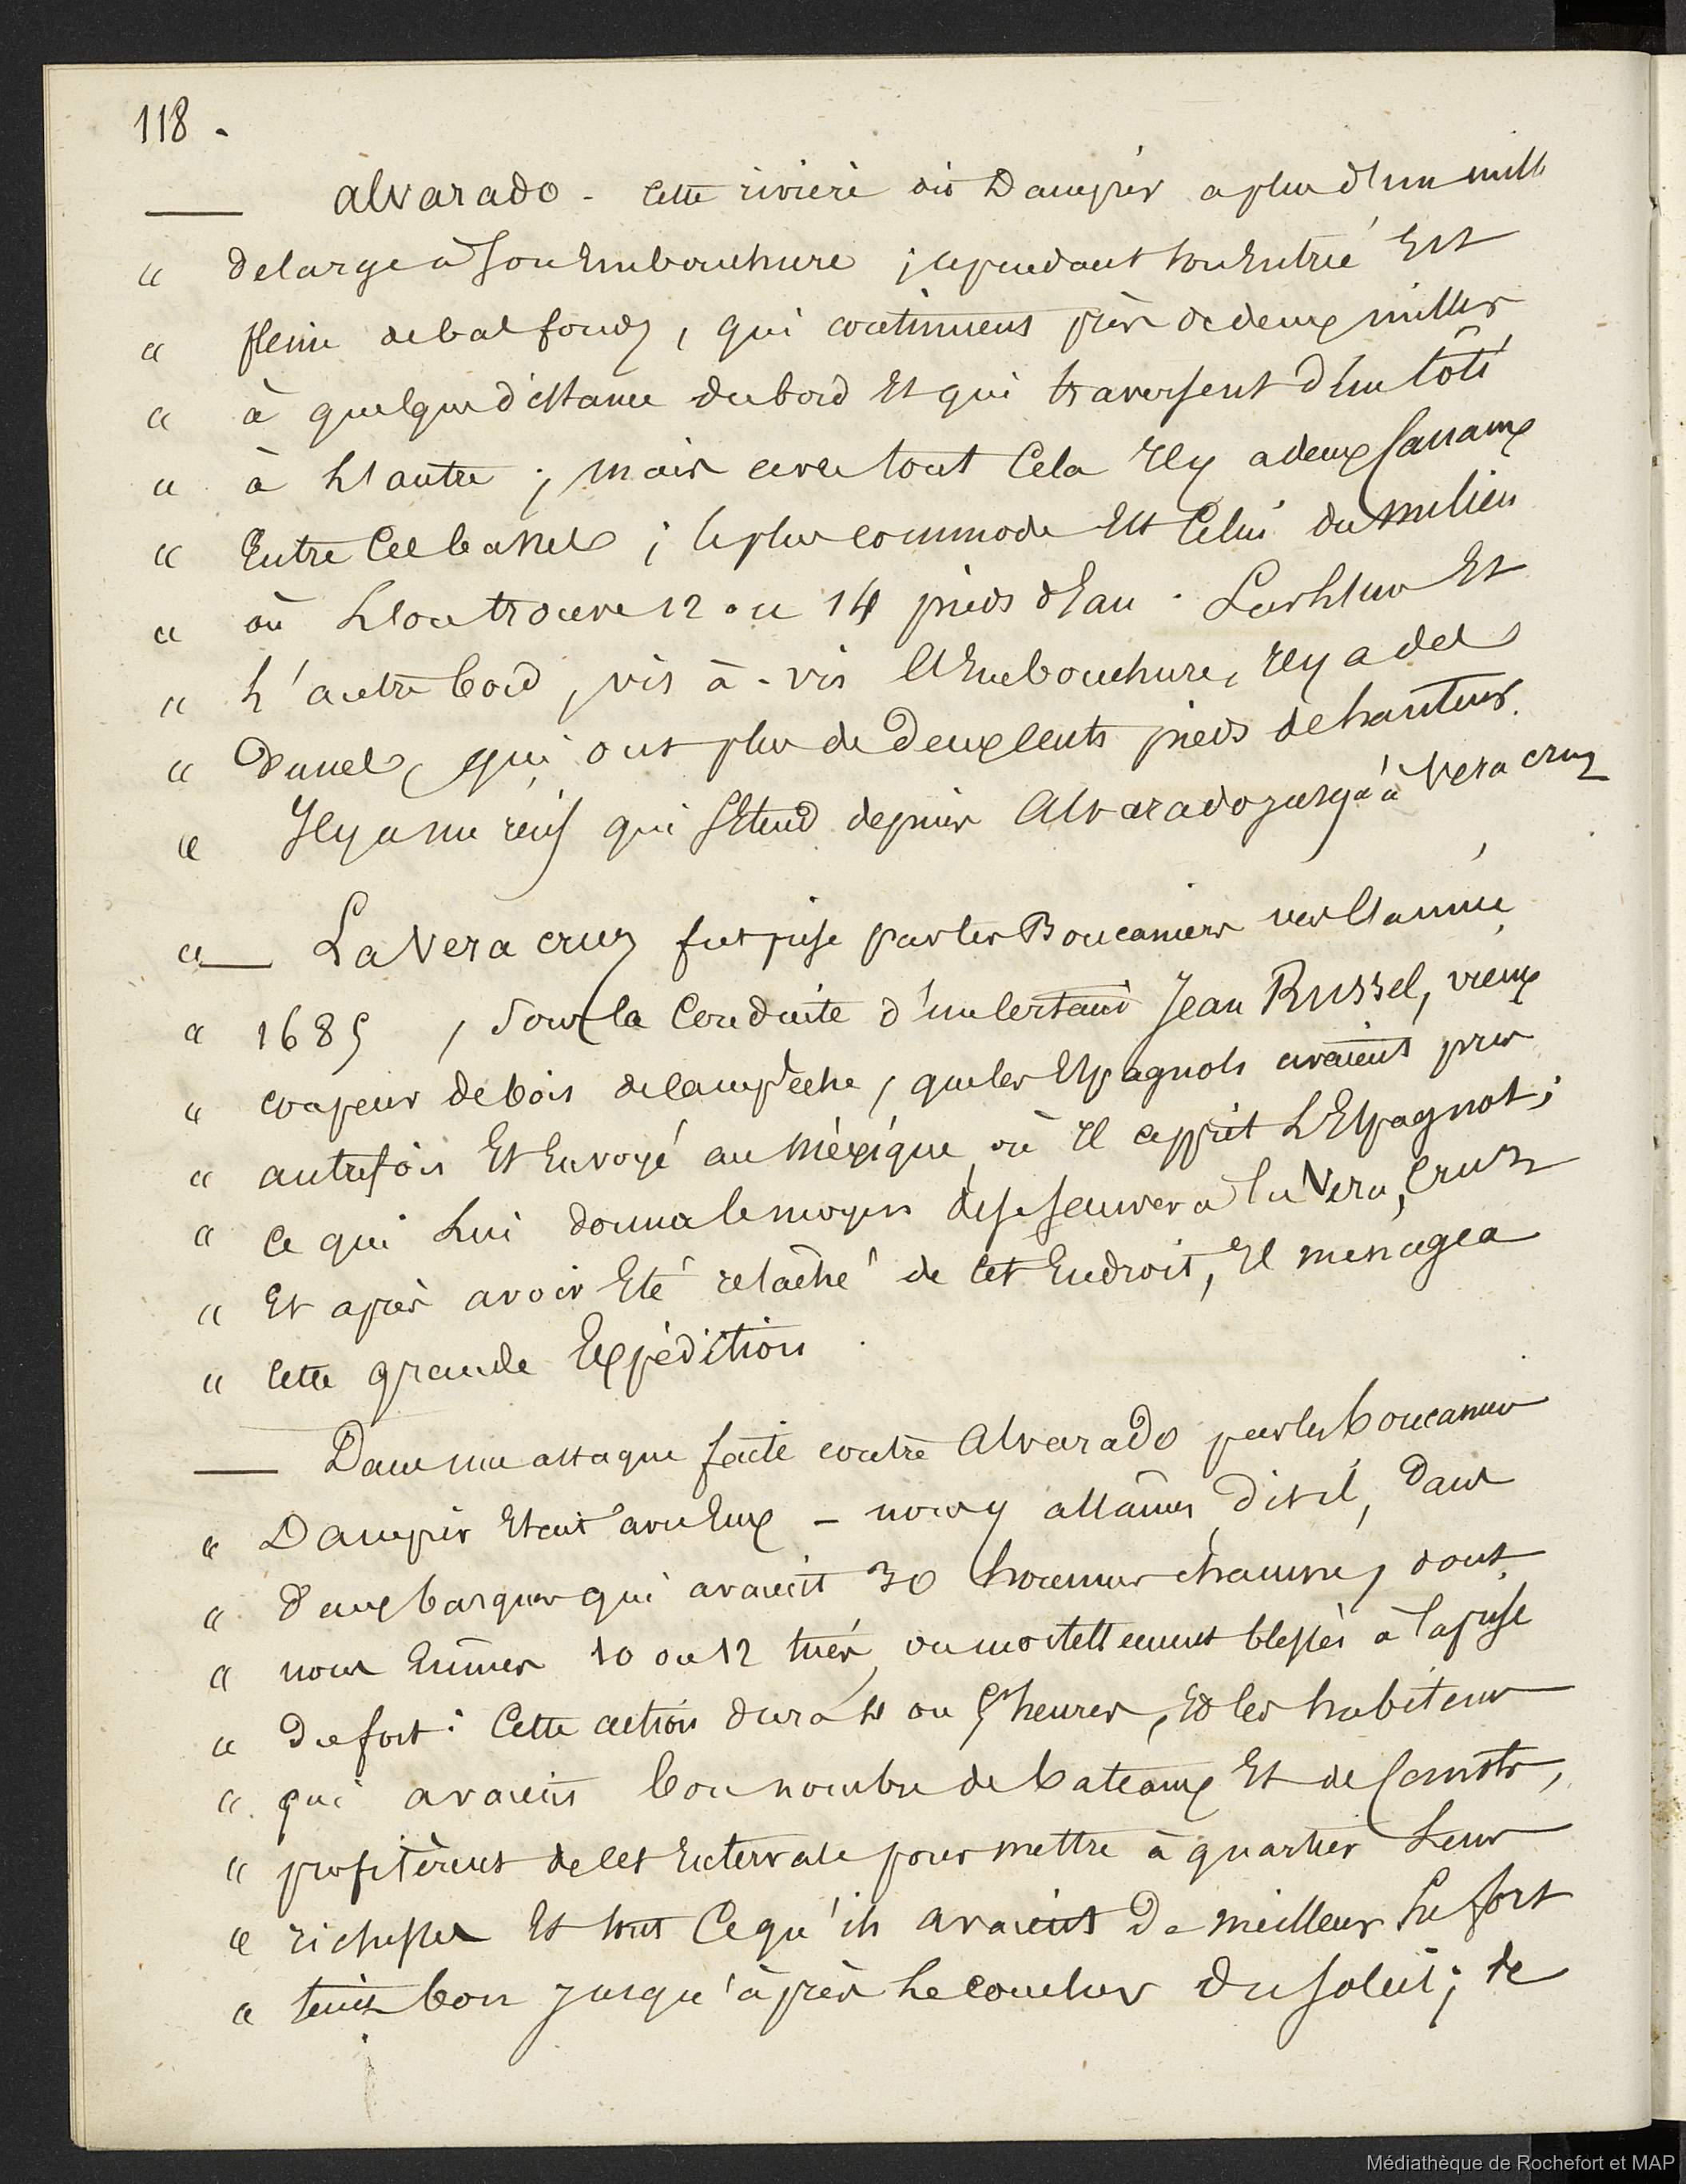 118 .
— alvarado - cette rivière dit Dampier a plus d'un mille
" de large à son Embouchure ; cependant son Entrée Est
" pleine de bas fonds, qui continuent près de deux milles
" à quelque distance du bord Et qui traversent d'un côté
" à L'autre ; mais avec tout Cela Il y a deux Canaux
" Entre Ces bancs ; le plus commode Est Celui du milieu
" où L'on trouve 12 ou 14 pieds d'Eau . Sur L'un Et
" L'autre bord, vis à - vis L'Embouchure, Il y a des
" Dunes, qui ont plus de Deux cents pieds de hauteur.
" Il y a un récif qui S'Etend depuis Alvarado jusqu'à Vera cruz
" — La Vera cruz fut prise par les Boucaniers vers L'année
" 1685 , sous la Conduite d'un certain Jean Russel, vieux
" coupeur de bois de Campêche, que les Espagnols avaient pris
" autrefois Et Envoyé au Méxique, où Il apprit L'Espagnol ;
" Ce qui Lui donna le moyen de se sauver à la Vera Cruz
" Et après avoir Eté relâché de Cet Endroit, Il ménagea
" Cette grande Expédition .
— Dans une attaque faite contre Alvarado par les boucaniers
" Dampier Etait avec Eux - nous y allâmes, dit-il, Dans
" Deux barques qui avaient 30 hommes chacune, dont
" nous Eûmes 10 ou 12 tués, ou mortellement blessés à la prise
" Du fort : Cette action dura 4 ou 5 heures, Et les habitans
" qui avaient bon nombre de bateaux Et de Canots,
" profitèrent de Cet Intervale pour mettre à quartier Leurs
" richesses Et tout Ce qu'ils avaient De meilleur Le fort
" tint bon jusqu'après Le coucher Du soleil ; de
Médiathèque de Rochefort et MAP